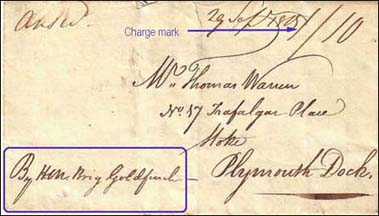 Ansd.
29 Sept 1815
Charge mark
1/10
Mr. Thomas Warren
No. 17 Trafalgar Place
Stoke
By HM Brig Goldfinch
Plymouth Dock.